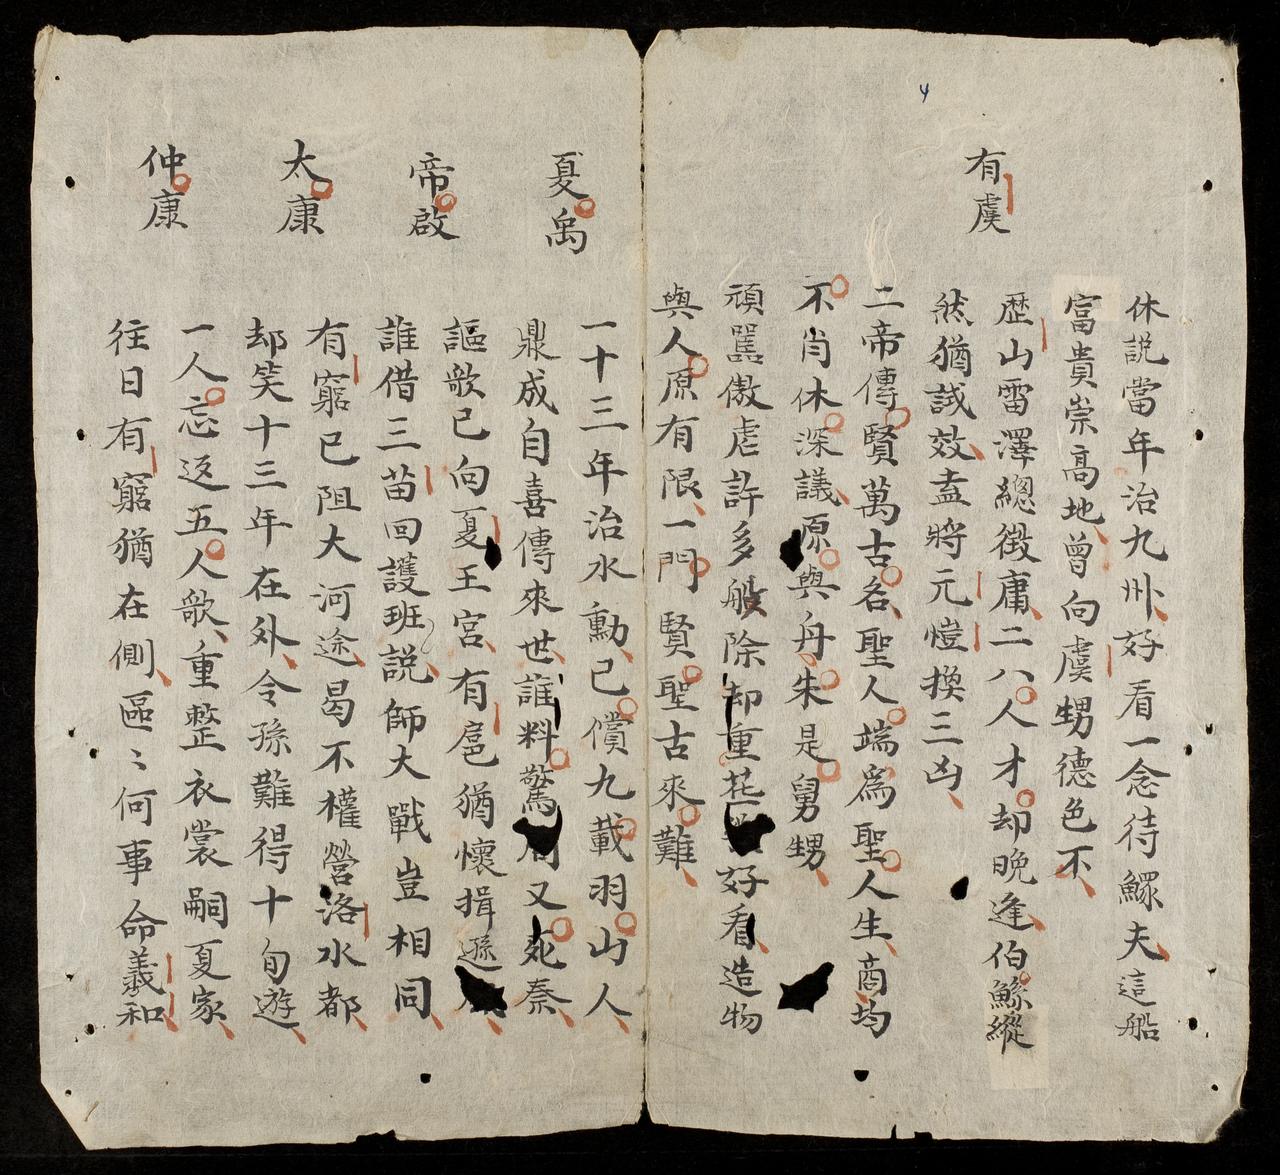 有虞
休説當年治九州好看一念待鰥夫這船
富貴崇高地曾向虞甥德色不
歷山雷澤總徴庸二八人才却晩逢伯鯀縱
然猶試效盍將元愷換三凶
二帝傳賢萬古名聖人端爲聖人生商均
不肖休深議原與丹朱是舅甥
頑嚚傲虐許多般除却重花 好看造物
與人原有限一門賢聖古來難
夏禹
一十三年治水勳已償九載羽山人
鼎成自喜傳來世誰料驚周又死秦
帝啟
謳歌已向夏王宮有扈猶懷揖遜
誰借三苗回護班説師大戰豈相同
太康
有窮已阻大河途曷不權營洛水都
却笑十三年在外令孫難得十旬遊
仲康
一人忘返五人歌重整衣裳嗣夏家
往日有窮猶在側區〻何事命羲和
4